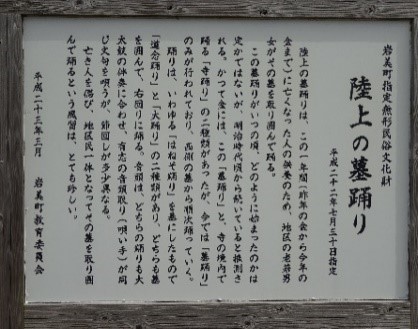 岩美町指定無形民俗文化財
陸上の墓踊り
平成二十二年七月三十日指定
陸上の墓踊りは、この一年間(昨年の盆から今年の
盆まで)に亡くなった人の供養のため、地区の老若男
女がその墓を取り囲んで踊る。
この墓踊りがいつの頃、どのように始まったのかは
定かではないが、明治時代頃から続いていると推測さ
れる。かつて盆には、この「墓踊り」と、寺の境内で
踊る「寺踊り」の二種類があったが、今では「墓踊り」
のみが行われており、西側の墓から順次踊っていく。
踊りは、いわゆる「はねそ踊り」を基にしたもので
「道念踊り」と「大踊り」の二種類があり、どちらも墓
を囲んで、右回りに踊る。音頭は、どちらの踊りも大
太鼓の伴奏に合わせ、有志の音頭取り(唄い手)が同
じ文句を唄うが、節回しが多少異なる。
亡き人を偲び、地区民一体となってその墓を取り囲
んで踊るという風習は、とても珍しい。
平成二十三年三月 岩美町教育委員会